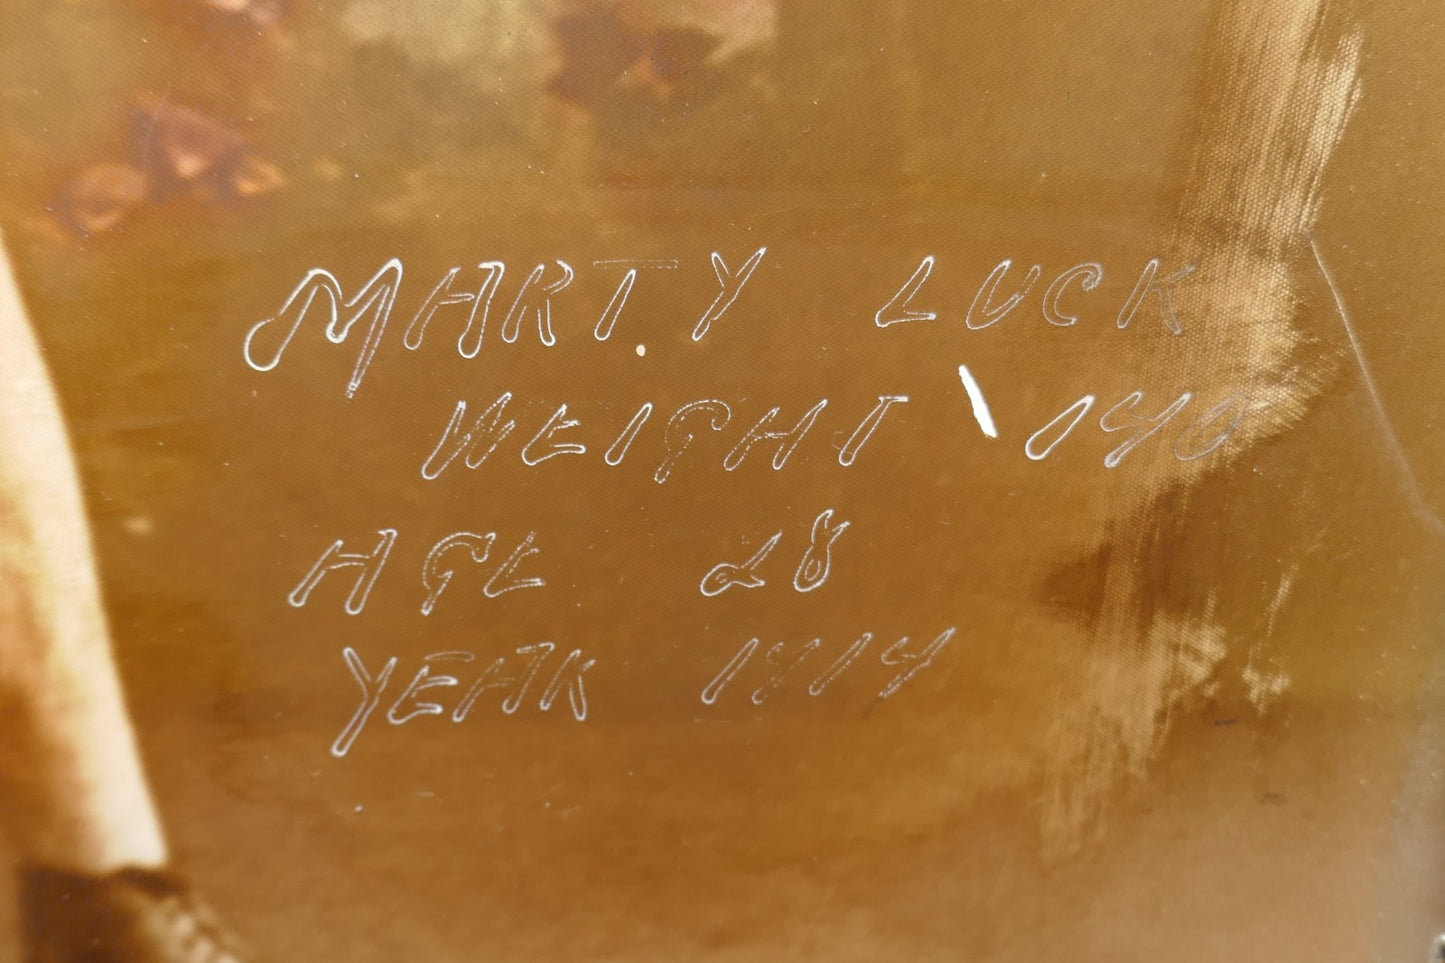 MARTY LUCK
WEIGHT 140
AGE 28
YEAR 1914